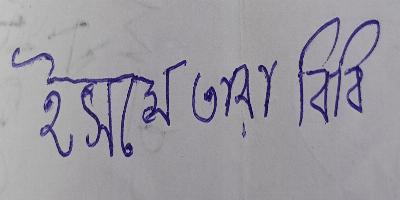 ইসমে তারা বিবি